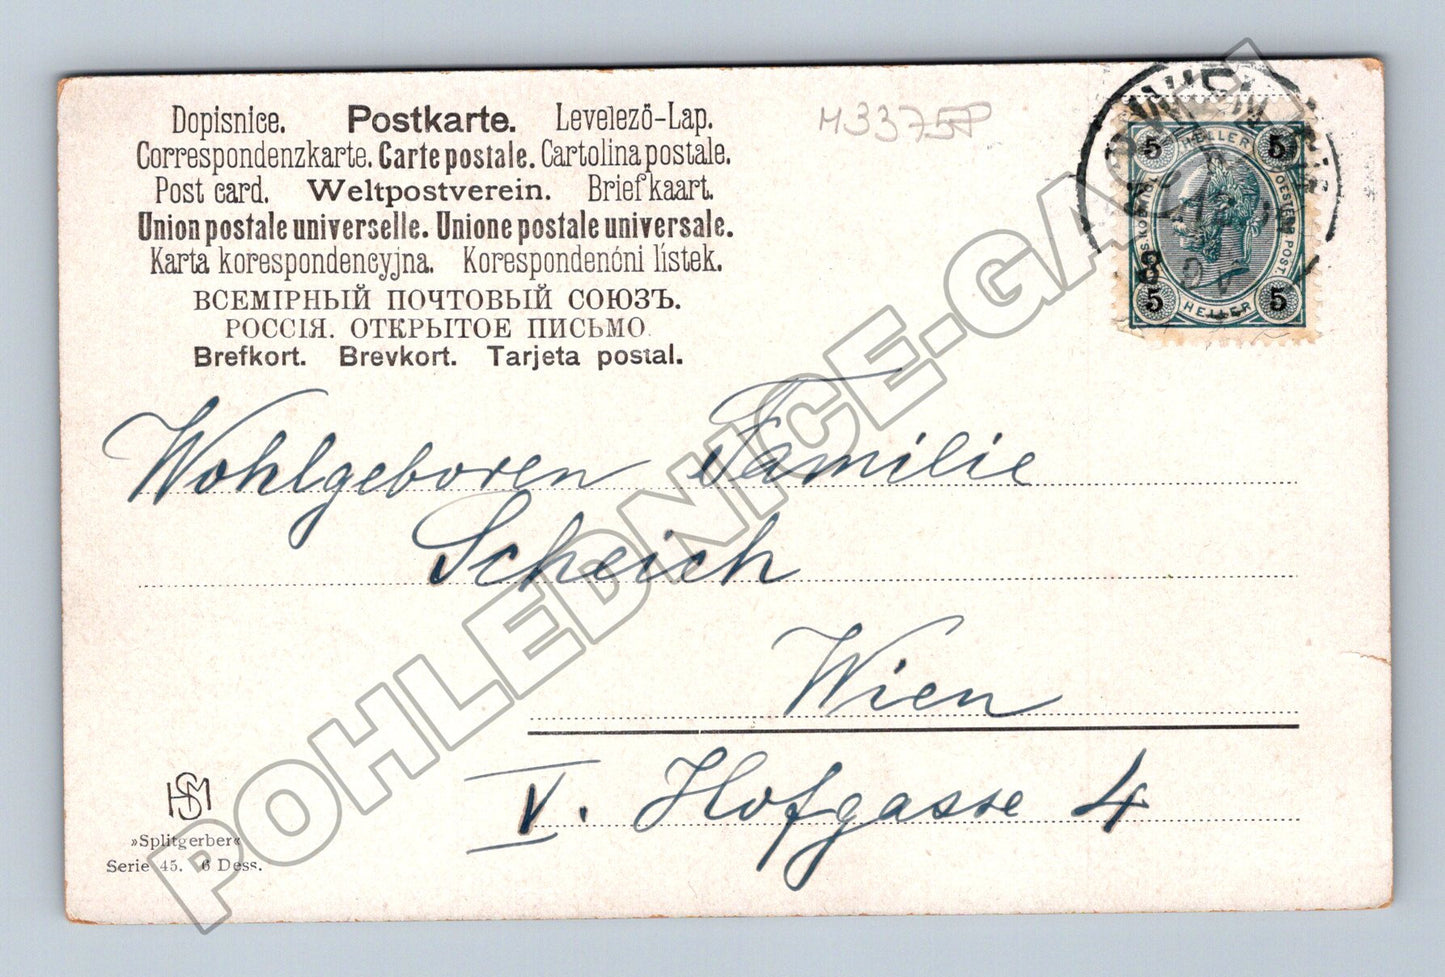 Dopisnice. Postkarte. Levelező-Lap.
Correspondenzkarte. Carte postale. Cartolina postale.
Post card. Weltpostverein. Briefkaart.
Union postale universelle. Unione postale universale.
Karta korespondencyjna. Korespondenćni lístek.
ВСЕМІРНЫЙ ПОЧТОВЫЙ СОЮЗЪ.
РОССІЯ. ОТКРЫТОЕ ПИСЬМО.
Brefkort. Brevkort. Tarjeta postal.
M33758
5 HELLER 5
5 HELLER 5
Wohlgeboren Familie
Scheich
Wien
V. Hofgasse 4
HSM
»Splitgerber«
Serie 45. 6 Dess.
POHLEDNICE-GASH